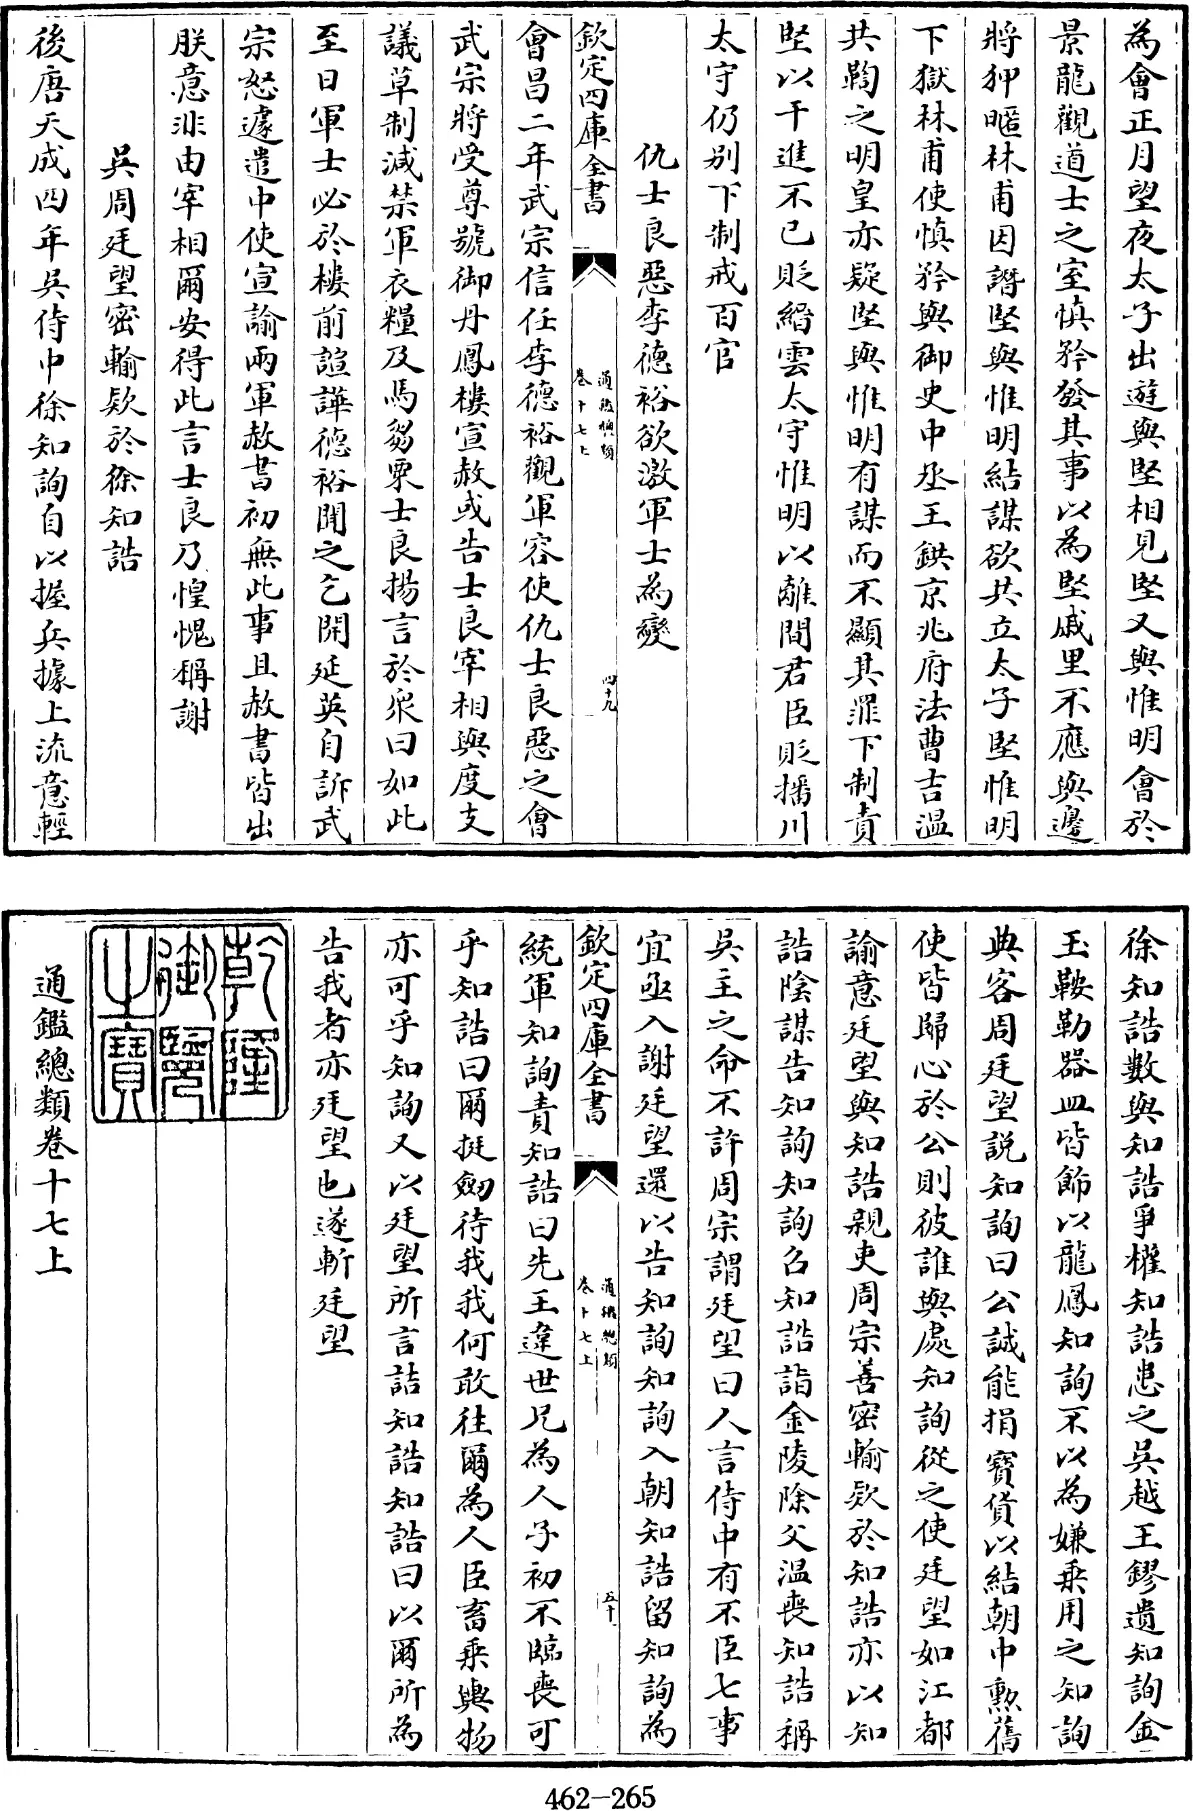 為會正月望夜太子出遊與堅相見堅又與惟明會於
景龍觀道士之室慎矜發其事以為堅戚里不應與邊
將狎暱林甫因譖堅與惟明結謀欲共立太子堅惟明
下獄林甫使慎矜與御史中丞王鉷京兆府法曹吉温
共鞫之明皇亦疑堅與惟明有謀而不顯其罪下制責
堅以干進不已貶縉雲太守惟明以離間君臣貶播川
太守仍别下制戒百官
仇士良惡李德裕欲激軍士為變
欽定四庫全書
通鑑總類
卷十七上
四十九
會昌二年武宗信任李德裕觀軍容使仇士良惡之會
武宗將受尊號御丹鳳樓宣赦或告士良宰相與度支
議草制減禁軍衣糧及馬芻粟士良揚言於衆曰如此
至日軍士必於樓前諠譁德裕聞之乞開延英自訴武
宗怒遽遣中使宣諭兩軍赦書初無此事且赦書皆出
朕意非由宰相爾安得此言士良乃惶愧稱謝
吳周廷望密輸欵於徐知誥
後唐天成四年吳侍中徐知詢自以握兵據上流意輕
徐知誥數與知誥爭權知誥患之吳越王鏐遺知詢金
玉鞍勒器皿皆飾以龍鳳知詢不以為嫌乘用之知詢
典客周廷望說知詢曰公誠能捐寳貨以結朝中勲舊
使皆歸心於公則彼誰與處知詢從之使廷望如江都
諭意廷望與知誥親吏周宗善密輸欵於知誥亦以知
誥陰謀告知詢知詢召知誥詣金陵除父温喪知誥稱
吳主之命不許周宗謂廷望曰人言侍中有不臣七事
宜亟入謝廷望還以告知詢知詢入朝知誥留知詢為
欽定四庫全書
通鑑總類
卷十七上
五十
統軍知詢責知誥曰先王違世兄為人子初不臨喪可
乎知誥曰爾挺劒待我我何敢往爾為人臣畜乘輿物
亦可乎知詢又以廷望所言詰知誥知誥曰以爾所為
告我者亦廷望也遂斬廷望
乾隆
御覽
之寶
通鑑總類卷十七上
462-265